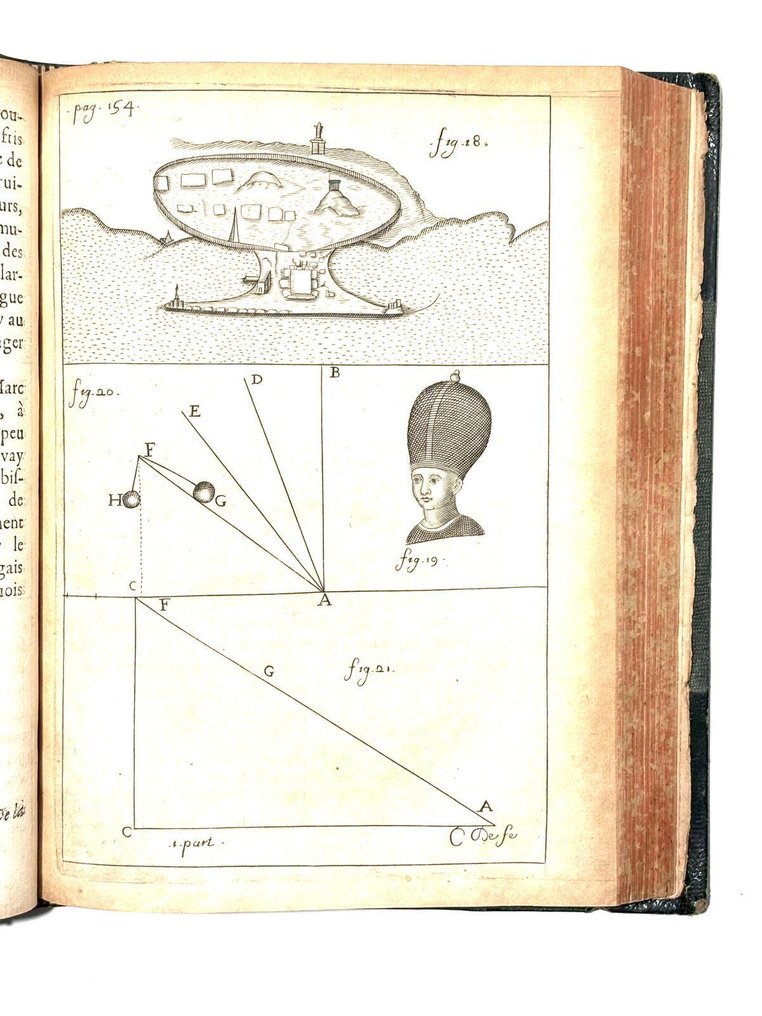 ou-
ftis
e de
rui-
urs,
mu-
des
lar-
gue
y au
ager
Marc
, à
peu
vay
bis-
de
ment
r le
gais
nois
De la
pag. 154.
fig. 18.
fig. 20.
D
B
E
F
H
G
fig. 19.
C
F
A
G
fig. 21.
A
C
1. part.
C De fe